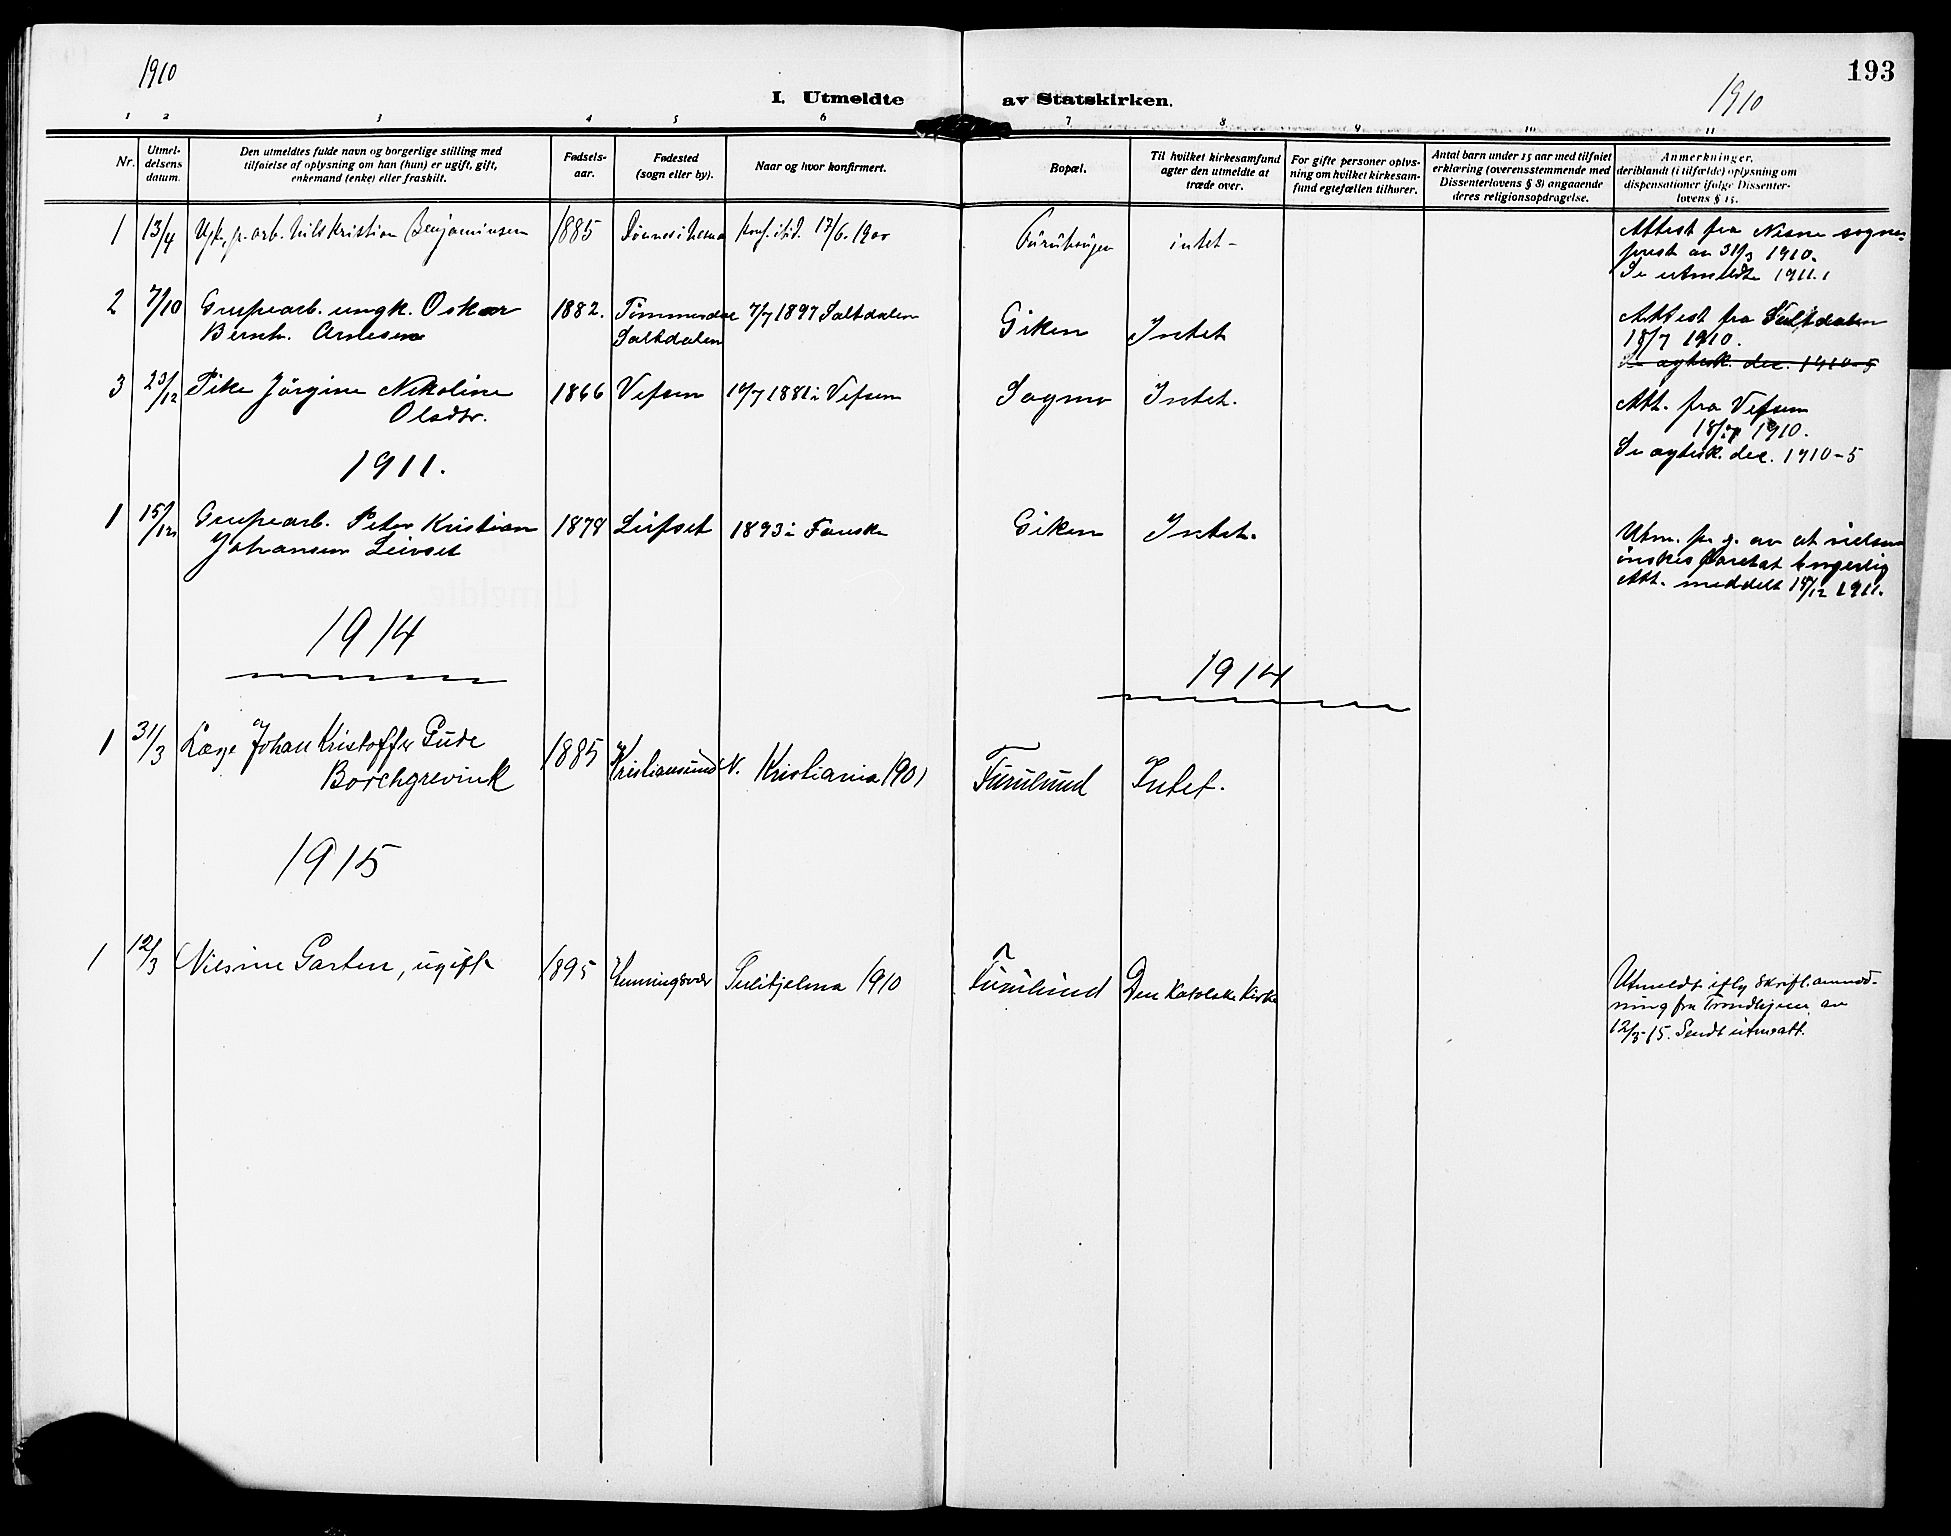 193
1910
1910
I. Utmeldte av Statskirken.
1 2 3 4 5 6 7 8 9 10 11
Nr.
Utmel-
delsens
datum.
Den utmeldtes fulde navn og borgerlige stilling med
tilføielse af oplysning om han (hun) er ugift, gift,
enkemand (enke) eller fraskilt.
Fødsels-
aar.
Fødested
(sogn eller by).
Naar og hvor konfirmert.
Bopæl.
Til hvilket kirkesamfund
agter den utmeldte at
træde over.
For gifte personer oplys-
ning om hvilket kirkesam-
fund egtefællen tilhører.
Antal barn under 15 aar med tilføiet
erklæring (overensstemmende med
Dissenterlovens § 8) angaaende
deres religionsopdragelse.
Anmerkninger,
deriblandt (i tilfælde) oplysning om
dispensationer ifølge Dissenter-
lovens § 15.
1 13/4 arb. Nils Kristian Benjaminsen 1885 Dønnes i Nesna konf. 17/6. 1900 intet-
Attest fra Nesne sogne-
prest av 31/3 1910.
Se utmeldte 1911.1
2 7/10 Grubearb. ungk. Oskar
Bernh. Arnesen
1882.
Saltdalen
7/7 1897 Saltdalen
Giken
Intet
Attest fra Saltdalen
18/7 1910.
Se egtesk. dec. 1910-5
3 23/12 Pike Jörgine Nikoline
Olsdtr.
1866 Vefsen 10/7 1881 i Vefsen Sagmo Intet.
Att. fra Vefsen
1910.
Se egtesk. dec. 1910-5
1911.
1 15/12 Grubearb. Peter Kristian
Johansen Leivset
1878 Leifset 1893 i Fauske Giken Intet.
Utm. p. g. av at vielsen
önskes foretat borgerlig
Att. meddelt 14/12 1911.
1914
1914
1 31/3 Læge Johan Kristoffer Gude
Borchgrevink
1885 Kristiansund N. Kristiania 1901 Furulund Intet.
1915
1 12/3 Nilsine Garten, ugift 1895 Henningsvær Sulitjelma 1910 Furulund Den Katolske Kirke
Utmeldt iflg skriftl. anmod-
ning fra Trondhjem av
12/3-15. Sendt utm.att.